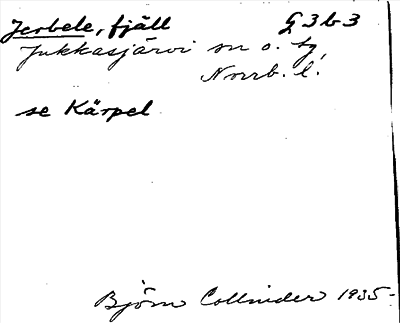 Jerbele, fjäll G 3 b 3
Jukkasjärvi sn o. tg,
Norrb. l.
se Kärpel
Björn Collinder 1935-